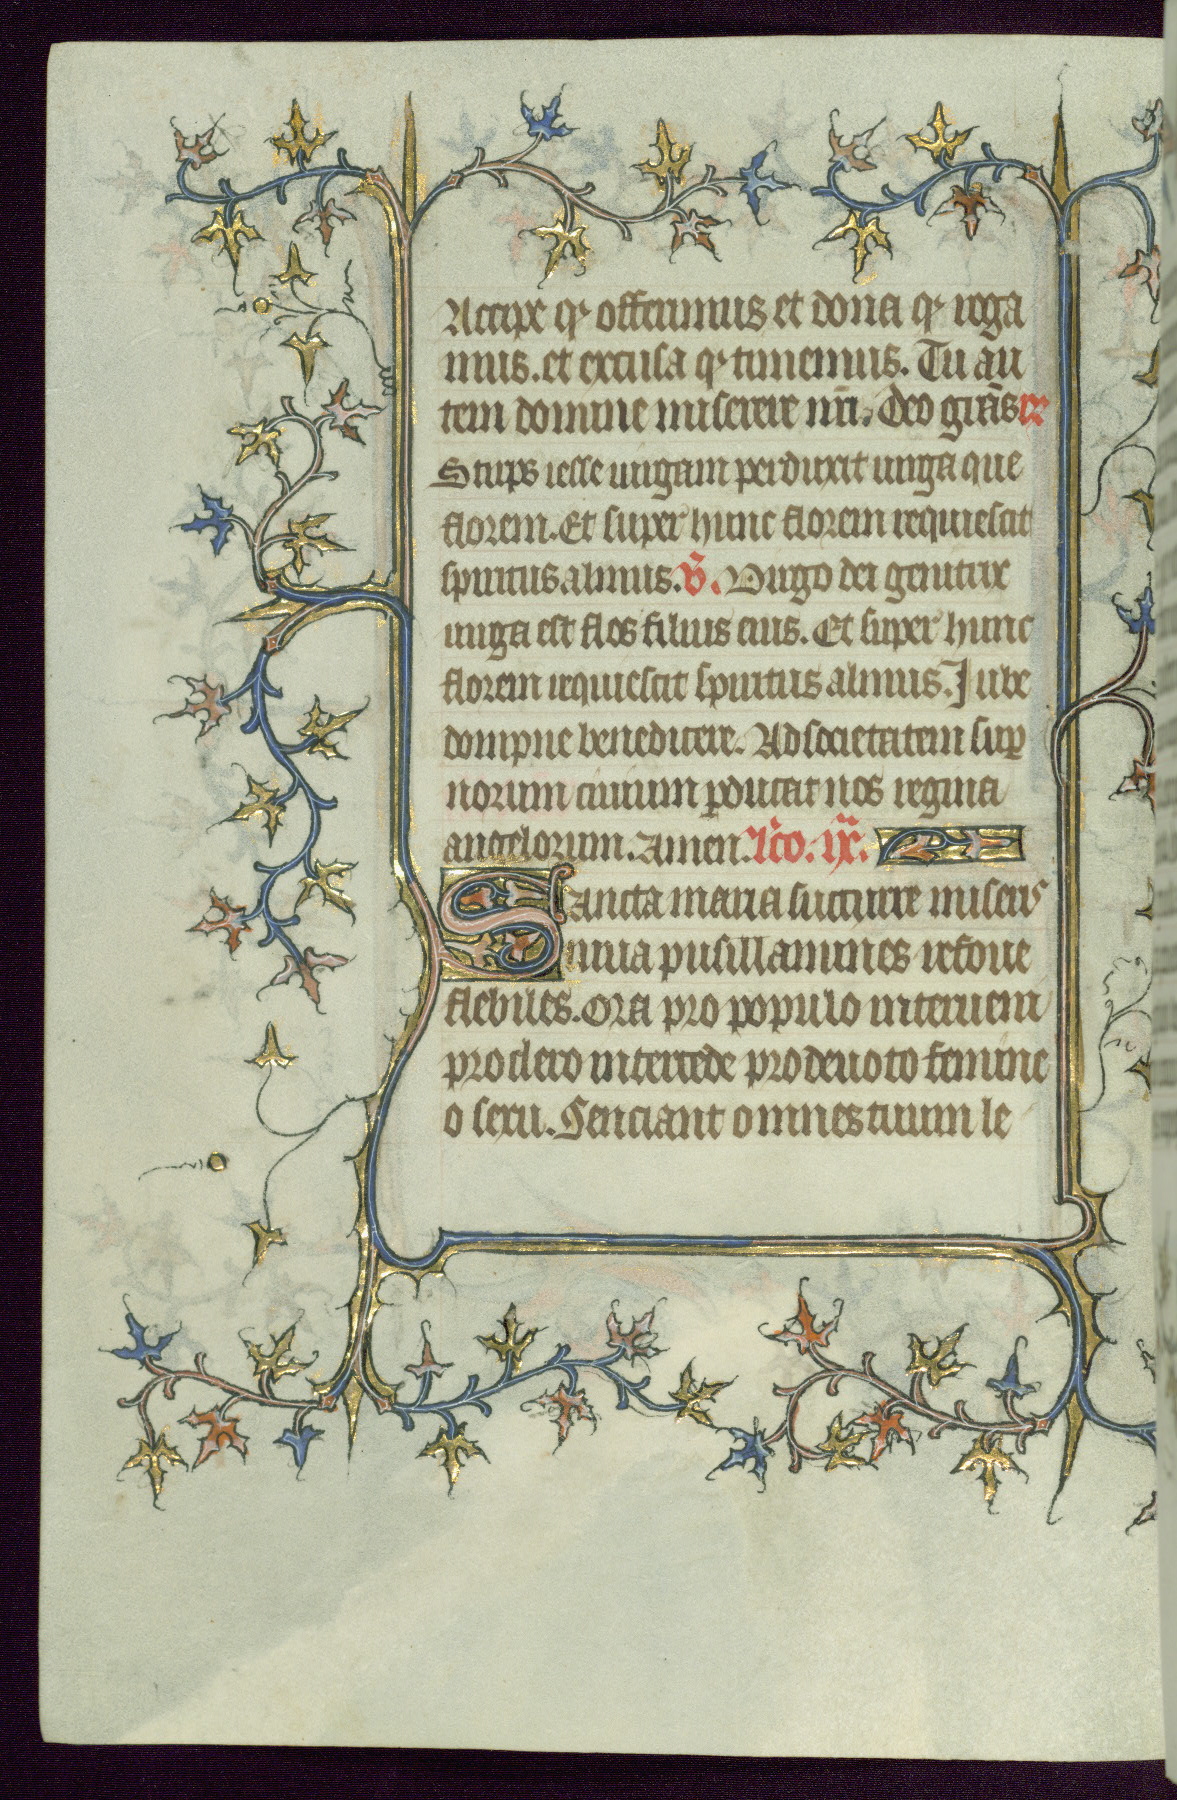 Accipe q̄ offerimus et dona q̄ roga
mus. et excusa q̄ timemus. Tu au
tem domine miserere nr̄i. Deo gr̄as R
Stirps iesse uirgam perduxit uirga que
florem. Et super hunc florem requiescit
spiritus almus. v̄. Uirgo dei genitrix
uirga est flos filius eius. Et super hunc
florem requiescit spiritus almus. Iube
dompne benedicere. Ad societatem sup̱
norum ciuium ꝑducat nos regina
angelorum. Amen. Lc̄o. ix.
Sancta maria succurre miseris
iuua pusillanimes refoue
flebiles. Ora pro populo interueni
pro clero intercede pro deuoto femine
o sexu. Senciant omnes tuum le